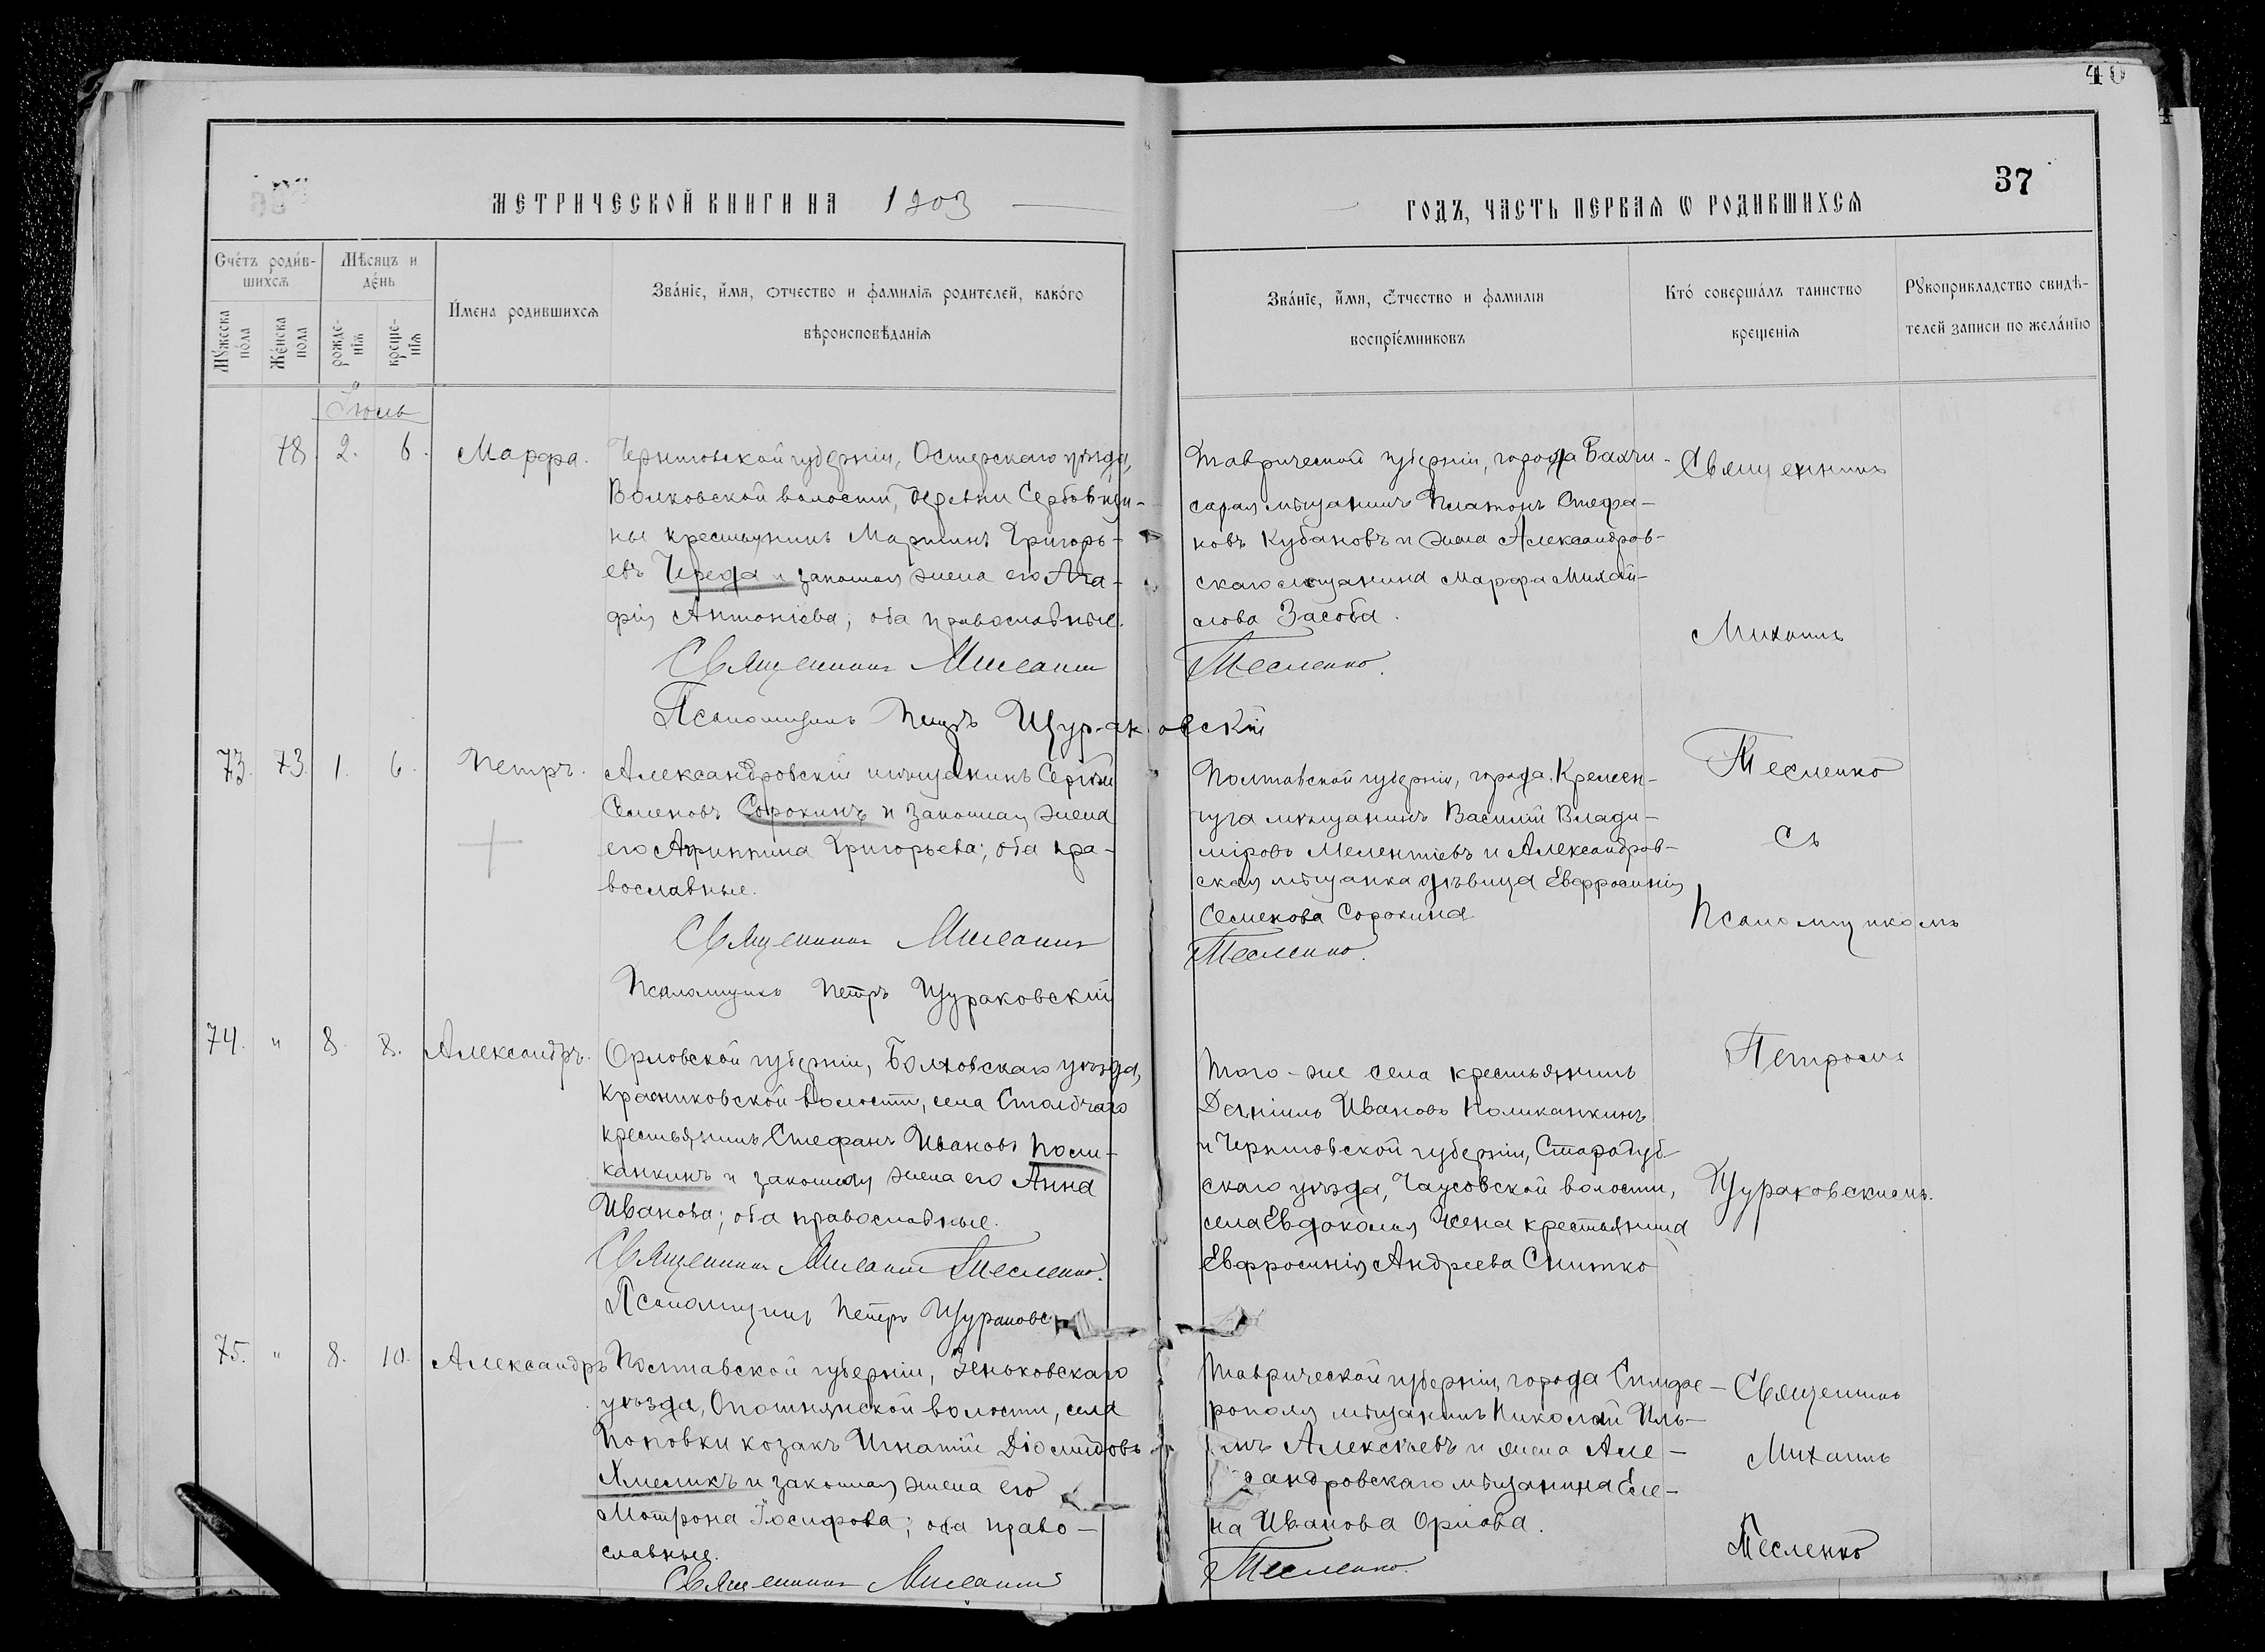 40
37
МЕТРИЧЕСКОЙ КНИГИ НА 1903
ГОДЪ, ЧАСТЬ ПЕРВАЯ Ѡ РОДИВШИХСЯ
Счетъ родив-
шихся
Мѣсяцъ и
день
Имена родившихся
Званіе, имя, отчество и фамилія родителей, какого
вѣроисповѣданія
Мужеска
пола
Женска
пола
рожде-
нія
креще-
нія
Званіе, имя, отчество и фамилія
воспріемниковъ
Кто совершалъ таинство
крещенія
Рукоприкладство свидѣ-
телей записи по желанію
78. 2. 6. Марфа.
Черниговской губерніи, Остерскаго уѣзда,
Волковской волости, деревни Сербовщи-
ны крестьянинъ Мартинъ Григорь-
евъ Череда и законная жена его Ага-
фія Антоніева; оба православные.
Священникъ Михаилъ
Тесленко.
Псаломщикъ Петръ Щураковскій
Таврической губерніи, города Бахчи-
сарая мѣщанинъ Платонъ Стефа-
новъ Кубановъ и жена Александров-
скаго мѣщанина Марфа Михай-
лова Засоба.
Священникъ
Михаилъ
Тесленко
съ
Псаломщикомъ
Петромъ
Щураковскимъ.
73. 73. 1. 6. Петръ.
Александровскій мѣщанинъ Сергій
Семеновъ Сорокинъ и законная жена
его Агриппина Григорьева; оба пра-
вославные.
Священникъ Михаилъ
Тесленко.
Псаломщикъ Петръ Щураковскій
Полтавской губерніи, города Кремен-
чуга мѣщанинъ Василій Влади-
міровъ Мелентіевъ и Александров-
ская мѣщанка дѣвица Евфросинія
Семенова Сорокина
74. " 8. 8. Александръ.
Орловской губерніи, Болховскаго уѣзда,
Красниковской волости, села Столбчаго
крестьянинъ Стефанъ Ивановъ Поли-
канкинъ и законная жена его Анна
Иванова; оба православные.
Священникъ Михаилъ Тесленко.
Псаломщикъ Петръ Щураковс
Того-же села крестьянинъ
Даніилъ Ивановъ Поликанкинъ
и Черниговской губерніи, Стародуб-
скаго уѣзда, Чаусовской волости,
села жена крестьянина
Евфросинія Андреева Снитко
75. " 8. 10. Александръ
Полтавской губерніи, Зеньковскаго
уѣзда, Опошнянской волости, села
Поповки козакъ Игнатій Діомидовъ
Хмеликъ и законная жена его
Мотрона Іосифова; оба право-
славные.
Священникъ Михаилъ
Тесленко.
Таврической губерніи, города Симфе-
рополя мѣщанинъ Николай Иль-
инъ Алексѣевъ и жена Але-
сандровскаго мѣщанина Еле-
на Иванова Орлова.
Священникъ
Михаилъ
Тесленко